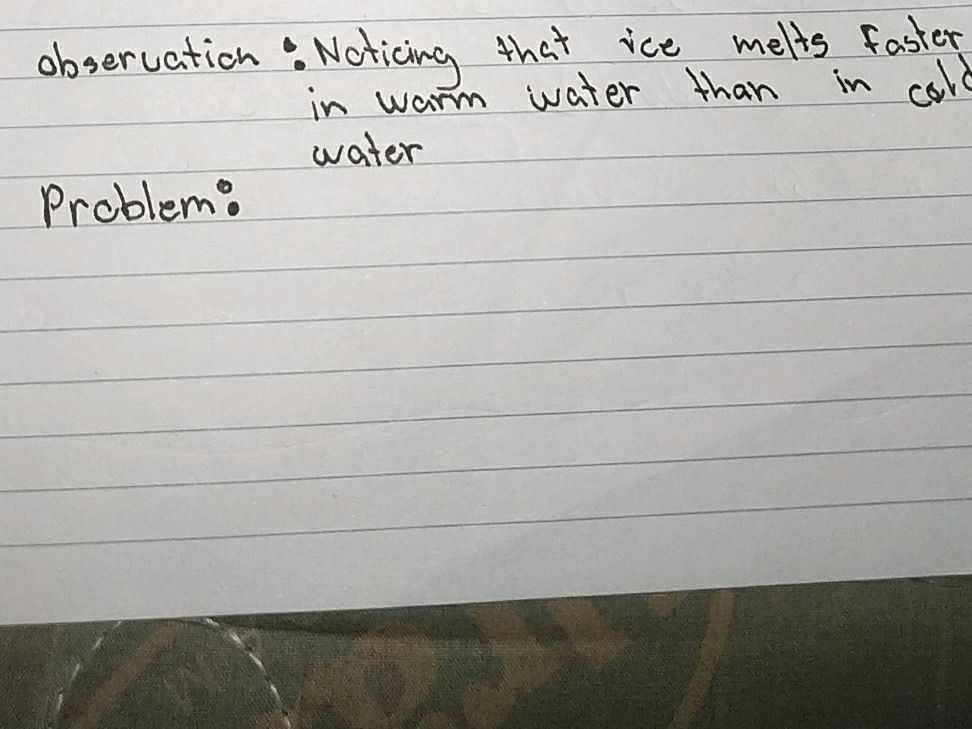 observation : Noticing that ice melts faster
in warm water than in cold
water
Problem: